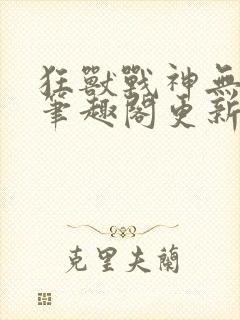 狂獸戰神無
筆趣閣更新
克里夫蘭